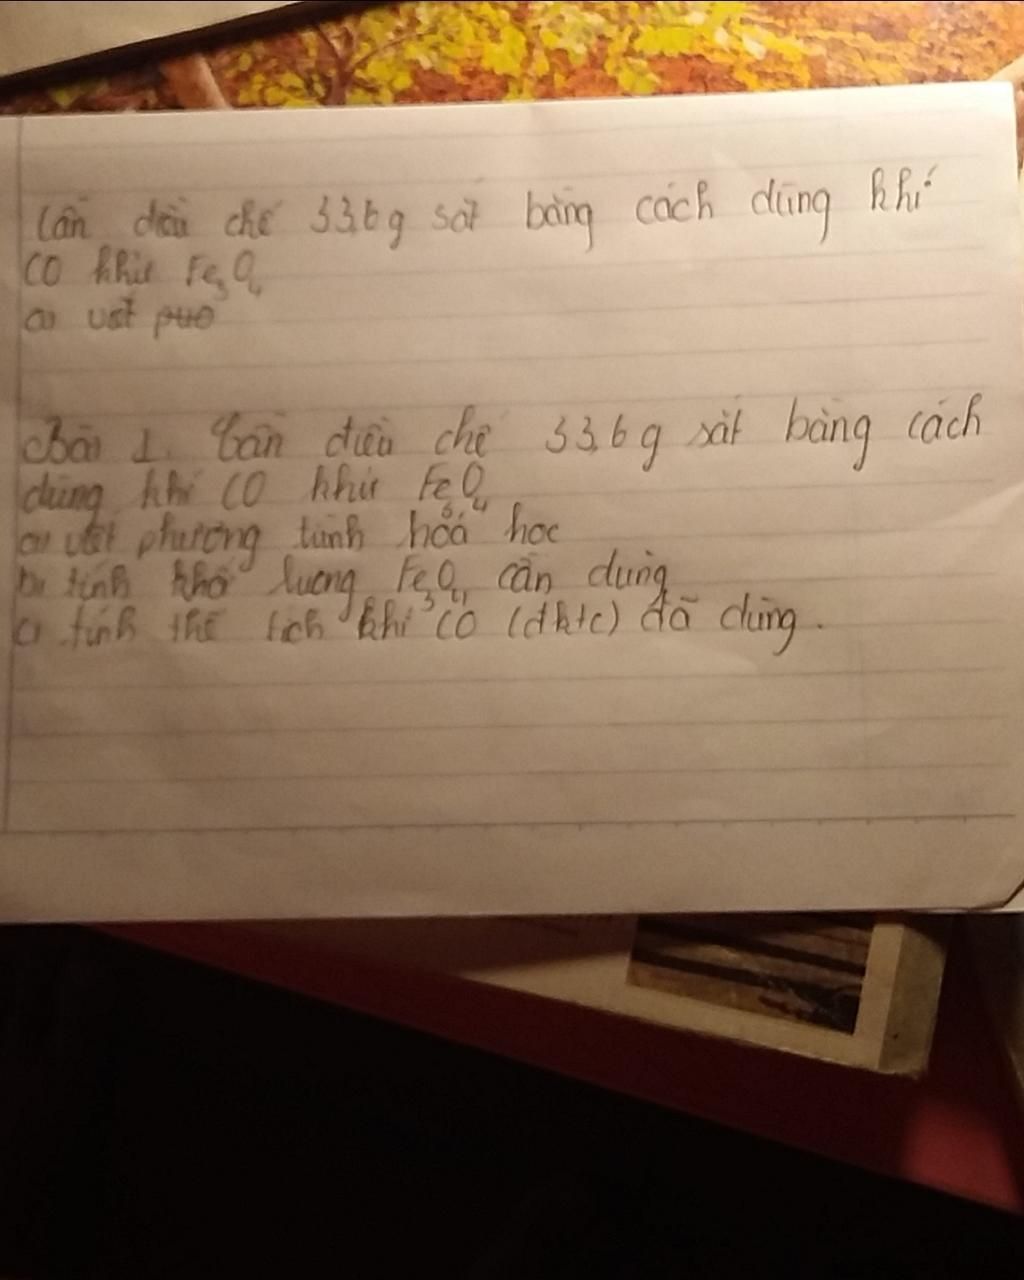 Cần điều chế 33,6g sắt bằng cách dùng khí
CO khử Fe3O4
a) viết ptre
Bài 1. Cần điều chế 33,6g sắt bằng cách
dùng khí CO khử Fe3O4
a) viết phương trình hoá học
b) tính khối lượng Fe3O4 cần dùng
c) tính thể tích khí CO (đktc) đã dùng.